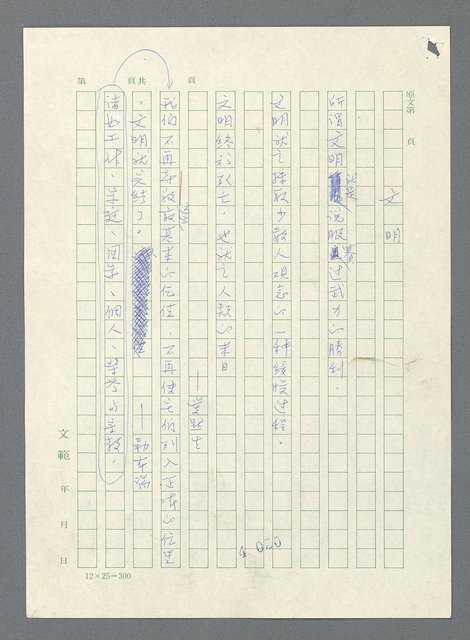 原文第　頁
文明
所謂文明就是說服賽過武力的勝利．
文明就是採取少數人觀念的一種緩慢過程。
文明終於死亡，也就是人類的末日
—愛默生
我們不再尊敬這些基本的價值，不再使它們列入正確的位置
，文明就完結了。　—勒布端
諸如工作、家庭、國家、個人、榮譽與宗教，
第　頁共　頁
文範　年　月　日
12×25=300